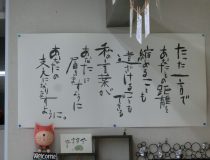 たった一言で
あなたの距離を
縮めることも
広げることもできる
私の言葉が
あなたに
届きますように
あなたの
支えになりますように。
Welcome